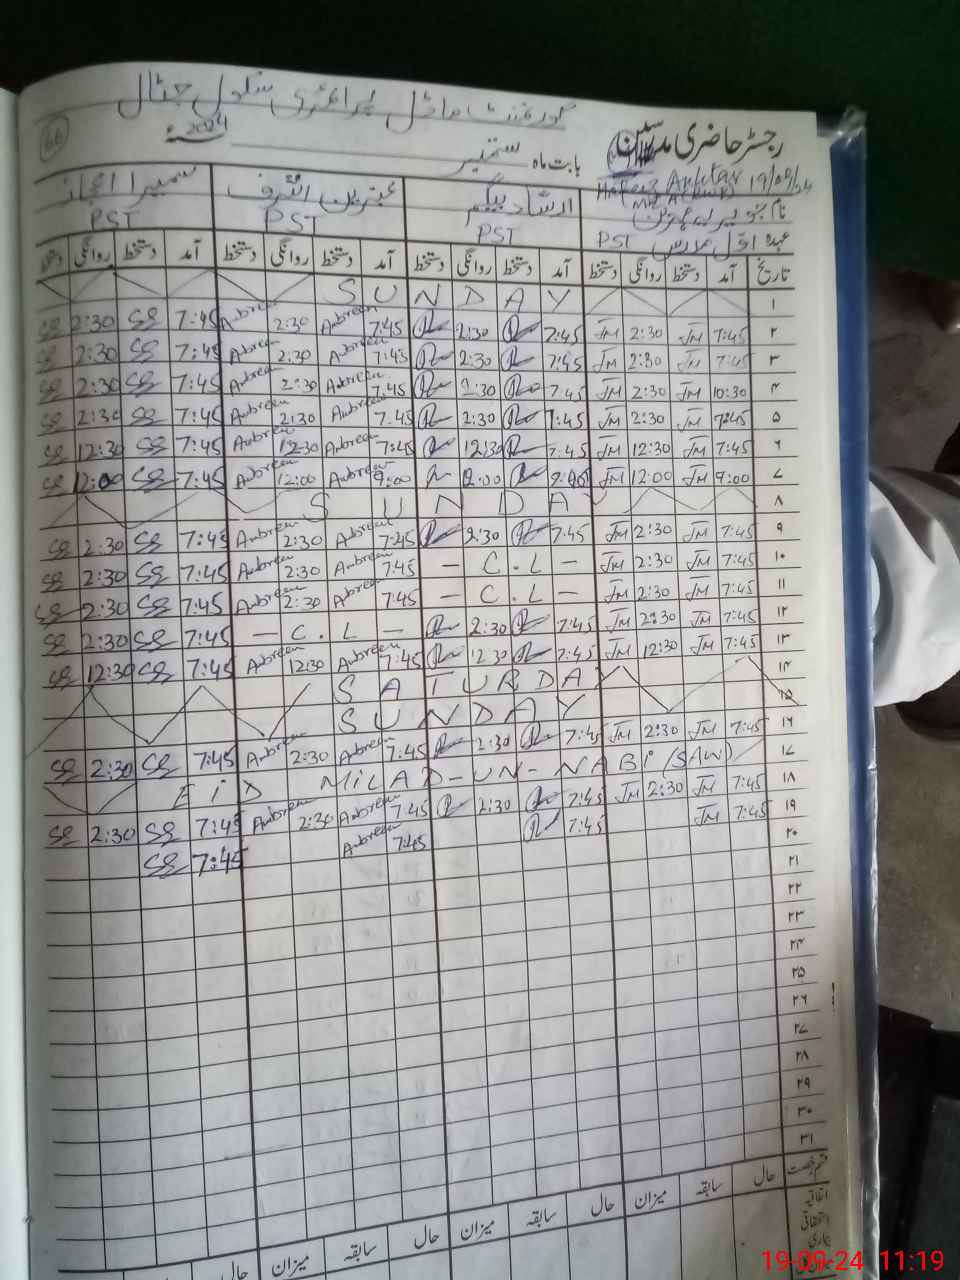 گورنمنٹ ماڈل پرائمری سکول جٹال
رجسٹر حاضری مدرسین
بابت ماہ ستمبر 2024ء
66
Akhtar 19/09/24
عہدہ PST ارشاد بیگم PST عنبرین اشرف PST سمیرا اعجاز PST
تاریخ آمد دستخط روانگی دستخط آمد دستخط روانگی دستخط آمد دستخط روانگی دستخط آمد دستخط روانگی دستخط
۱ SUNDAY
۲ 7:45 JM 2:30 JM 7:45 2:30 7:45 Ambreen 2:30 Ambreen 7:45 SS 2:30 SS
۳ 7:45 JM 2:30 JM 7:45 2:30 7:45 Ambreen 2:30 Ambreen 7:45 SS 2:30 SS
۴ 10:30 JM 2:30 JM 7:45 2:30 7:45 Ambreen 2:30 Ambreen 7:45 SS 2:30 SS
۵ 7:45 JM 2:30 JM 7:45 2:30 7:45 Ambreen 2:30 Ambreen 7:45 SS 2:30 SS
۶ 7:45 JM 12:30 JM 7:45 12:30 7:45 Ambreen 12:30 Ambreen 7:45 SS 12:30 SS
۷ 9:00 JM 12:00 JM 9:00 Ambreen 12:00 Ambreen 7:45 SS 12:00 SS
۸ SUNDAY
۹ 7:45 JM 2:30 JM 7:45 2:30 7:45 Ambreen 2:30 Ambreen 7:45 SS 2:30 SS
۱۰ 7:45 JM 2:30 JM - C.L - 7:45 Ambreen 2:30 Ambreen 7:45 SS 2:30 SS
۱۱ 7:45 JM 2:30 JM - C.L - 7:45 Ambreen 2:30 Ambreen 7:45 SS 2:30 SS
۱۲ 7:45 JM 2:30 JM 7:45 2:30 - C.L - 7:45 SS 2:30 SS
۱۳ 7:45 JM 12:30 JM 7:45 12:30 7:45 Ambreen 12:30 Ambreen 7:45 SS 12:30 SS
۱۴ SATURDAY
۱۵ SUNDAY
۱۶ 7:45 JM 2:30 JM 7:45 2:30 7:45 Ambreen 2:30 Ambreen 7:45 SS 2:30 SS
۱۷ EID MILAD-UN-NABI (SAW)
۱۸ 7:45 JM 2:30 JM 7:45 2:30 7:45 Ambreen 2:30 Ambreen 7:45 SS 2:30 SS
۱۹ 7:45 JM 7:45 7:45 Ambreen 7:45 SS
۲۰
۲۱
۲۲
۲۳
۲۴
۲۵
۲۶
۲۷
۲۸
۲۹
۳۰
۳۱
قسم رخصت حال سابقہ میزان حال سابقہ میزان حال سابقہ میزان حال
اتفاقیہ
19-09-24 11:19